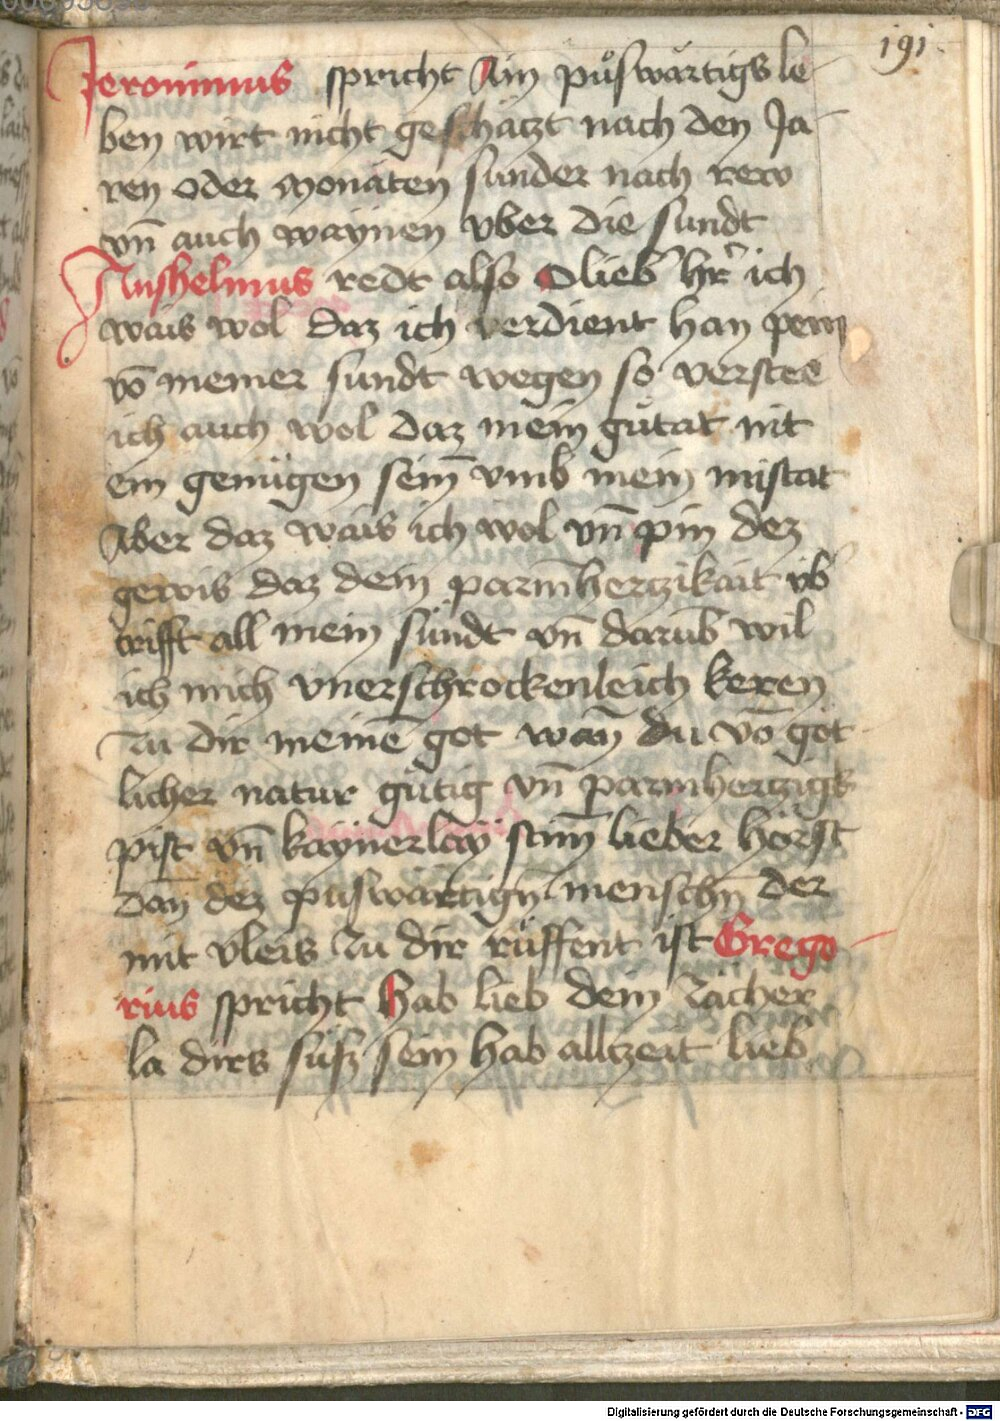 191
Jeronimus spricht Ain půswärtigs le
ben wirt nicht geschäczt nach den Ja
ren oder monäten sunder nach rew
vn̄ auch waynen vber die sundt
Anshelmus redt also O lieb hr̄ ich
wais wol daz ich verdient han pein
vō meiner sundt wegen so verstee
ich auch wol daz mein gůtat nit
ein genügen sein̄ vmb mein mistat
Aber daz wais ich wol vn̄ pin dez
gewis daz dein parm̄herczikait üb
trifft all mein sündt vn̄ darūb wil
ich mich vnerschrockenleich keren
zu dir meinē got wan̄ du vō göt
licher natur gütig vn̄ parmherczigk
pist vn̄ kaynerlay stim̄ lieber hörst
dan̄ dez puswärtign̄ menschn̄ der
mit vleis zu dir růffent ist Grego
rius spricht Hab lieb dein zächer
la dirs süsz sein hab allczeit lieb
Digitalisierung gefördert durch die Deutsche Forschungsgemeinschaft - DFG